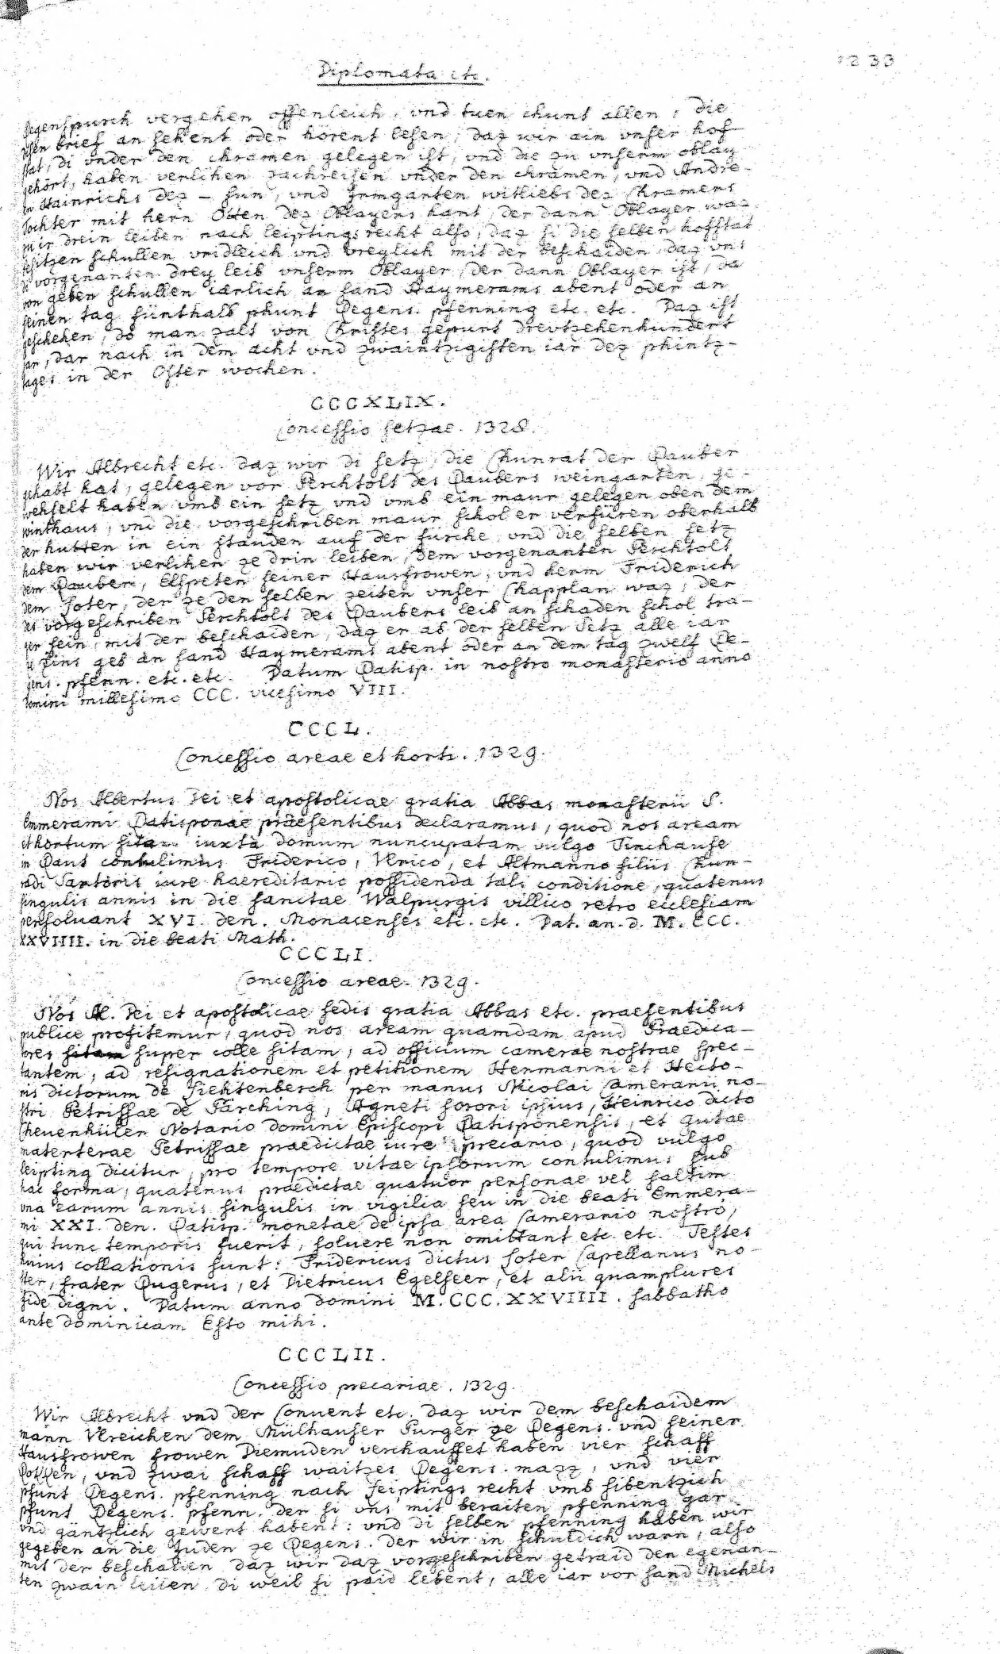 Diplomata etc.
233
Regenspurch vergehen offenleich, vnd tuen chunt allen, die
disen brief an sehent oder hörent lesen, daz wir ain vnser hof-
stat, di vnder den chramen gelegen ist, vnd die zu vnserm oblay
gehört, haben verlihen vnder den chramen, vnd Andre-
Hainrichs dez - sun, vnd Irmgarten witliebs dez Chramers
tochter mit hern Otten dez Oblayers hant, der dann Oblayer waz
drein leiben nach leiptings recht also, daz si die selben hofstat
besitzen schullen vridleich vnd vreylich mit der beschaiden, daz vns
di vorgenanten drey leib vnserm Oblayer, der dann Oblayer ist, da
von geben schullen iärlich an sand Haymerams abent oder an
seinen tag fünthalb phunt Regens. pfenning etc. etc. Daz ist
geschehen, do man zalt von Christes gepurt drevtzehenhundert
iar, dar nach in dem acht vnd zwaintzigisten iar dez phintz-
tages in der Oster wochen.
CCCXLIX.
Concessio setzae. 1328.
Wir Albrecht etc. daz wir di setz, die Chunrat der Dauber
gehabt hat, gelegen vor Perchtolt des Daubers weingarten, ge-
wehselt haben vmb ein setz vnd vmb ein maur gelegen oben dem
winthaus, vnd die vorgeschriben maur schol er verfüren oberhalb
der hutten in ein standen auf der fürche, vnd die selben setz
haben wir verlihen ze drin leiben, dem vorgenanten Perchtolt
dem Dauber, Elspeten seiner Hausfrowen, vnd herm Friderich
dem Soter, der ze den selben zeiten vnser Chapplan waz, der
des vorgeschriben Perchtolt des Daubers leib an schaden schol tra-
ger sein, mit der beschaiden, daz er ab der selben Setz alle iar
ze zins geb an sand Haymerams abent oder an dem tag zwelf Re-
gens. pfenn. etc. etc. Datum Ratisp. in nostro monasterio anno
domini millesimo CCC. vicesimo VIII.
CCCL.
Concessio areae et horti. 1329.
Nos Albertus Dei et apostolicae gratia Abbas monasterii S.
Emmerami Ratisponae praesentibus declaramus, quod nos aream
et hortum sitam iuxta domum nuncupatam vulgo Tinchause
in Daut contulimus Friderico, Vlrico, et Altmanno filiis Chun-
radi Sartoris iure haereditario possidenda tali conditione, quatenus
singulis annis in die sanctae Walpurgis villico retro ecclesiam
persoluant XVI. den. Monacenses etc. etc. Dat. an. d. M. CCC.
XXVIIII. in die beati Math.
CCCLI.
Concessio areae. 1329.
Nos Al. Dei et apostolicae sedis gratia Abbas etc. praesentibus
publice profitemur, quod nos aream quamdam apud Praedica-
tores super colle sitam, ad officium camerae nostrae spec-
tantem, ad resignationem et petitionem Henmanni et Hecto-
ris dictorum de Liehtenberch per manus Nicolai Camerarii no-
stri Petrissae de Parching, Agneti sorori ipsius, Heinrico dicto
Cheuenhüler Notario domini Episcopi Ratisponensis, et Gutae
materterae Petrissae praedictae iure precario, quod vulgo
leipting dicitur, pro tempore vitae ipsorum contulimus sub
hac forma, quatenus praedictae quatuor personae vel saltim
vna earum annis singulis in vigilia seu in die beati Emmera-
mi XXI. den. Ratisp. monetae de ipsa area Camerario nostro,
qui tunc temporis fuerit, soluere non omittant etc. etc. Testes
huius collationis sunt: Fridericus dictus Soter Capellanus no-
ster, frater Rugerus, et Dietricus Egelseer, et alii quamplures
fide digni. Datum anno domini M. CCC. XXVIIII. sabbatho
ante dominicam Esto mihi.
CCCLII.
Concessio precariae. 1329.
Wir Albrecht vnd der Conuent etc. daz wir dem beschaidem
mann Vlreichen dem Mülhauser Purger ze Regens. vnd seiner
Hausfrowen frowen Diemuden verchauffet haben vier schaff
Rokken, vnd zwai schaff waitzes Regens. mazz, vnd vier
pfunt Regens. pfenning nach Leiptings recht vmb sibentzich
pfunt Regens. pfenn. der si vns mit beraiten pfenning gar
vnd gäntzlich gewert habent: vnd di selben pfenning haben wir
gegeben an die Juden ze Regens. der wir in schuldich warn, also
mit der beschaiden daz wir daz vorgeschriben getraid den egenan-
ten zwain leiben di weil si paid lebent, alle iar vor sand Michels